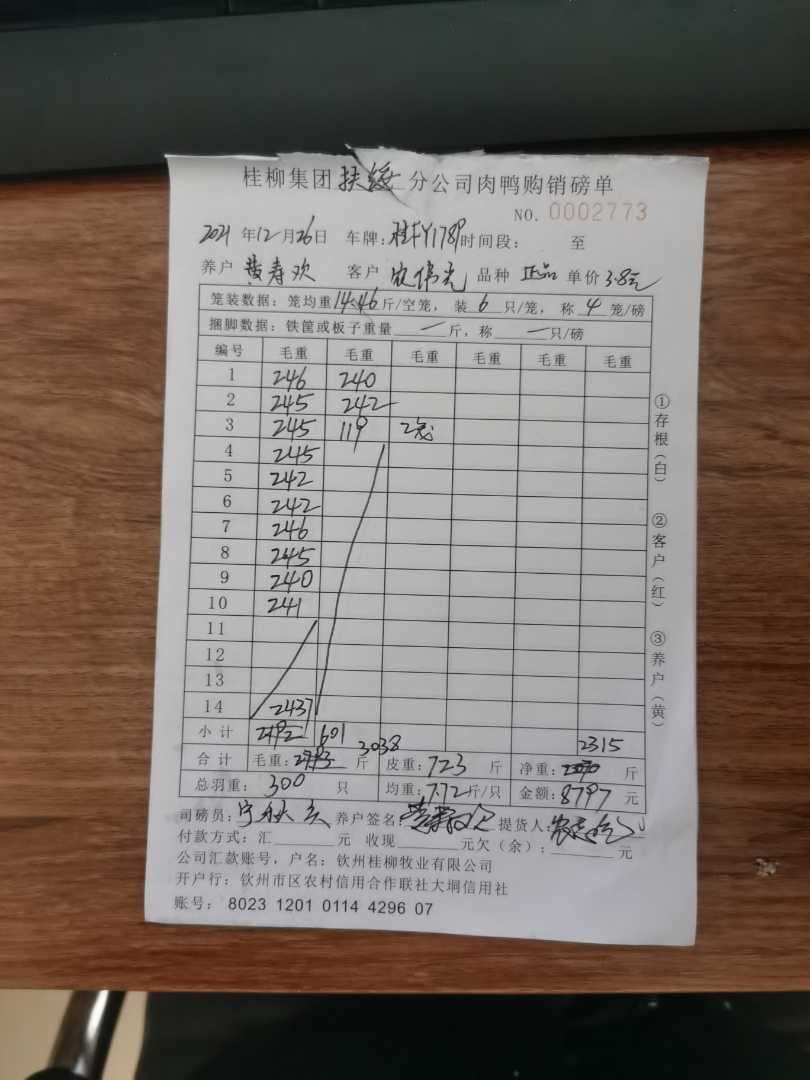 桂柳集团扶绥分公司肉鸭购销磅单
NO. 0002773
2021年12月26日 车牌: 桂FY1789 时间段: 至
养户 黄寿欢 客户 农伟光 品种 正品 单价 3.8元
笼装数据: 笼均重14.46斤/空笼, 装6只/笼, 称4笼/磅
捆脚数据: 铁筐或板子重量 一 斤, 称 一 只/磅
编号 毛重 毛重 毛重 毛重 毛重 毛重
1 246 240
2 245 242
3 245 119 2笼
4 245
5 242
6 242
7 246
8 245
9 240
10 241
11
12
13
14 2437
小计 601 2315
合计 毛重: 3038 斤 皮重: 723 斤 净重: 斤
总羽重: 300 只 均重: 7.72斤/只 金额: 8797 元
司磅员: 养户签名: 提货人:
付款方式: 汇 元 收现 元欠(余): 元
公司汇款账号, 户名: 钦州桂柳牧业有限公司
开户行: 钦州市区农村信用合作联社大垌信用社
账号: 8023 1201 0114 4296 07
①存根(白)
②客户(红)
③养户(黄)